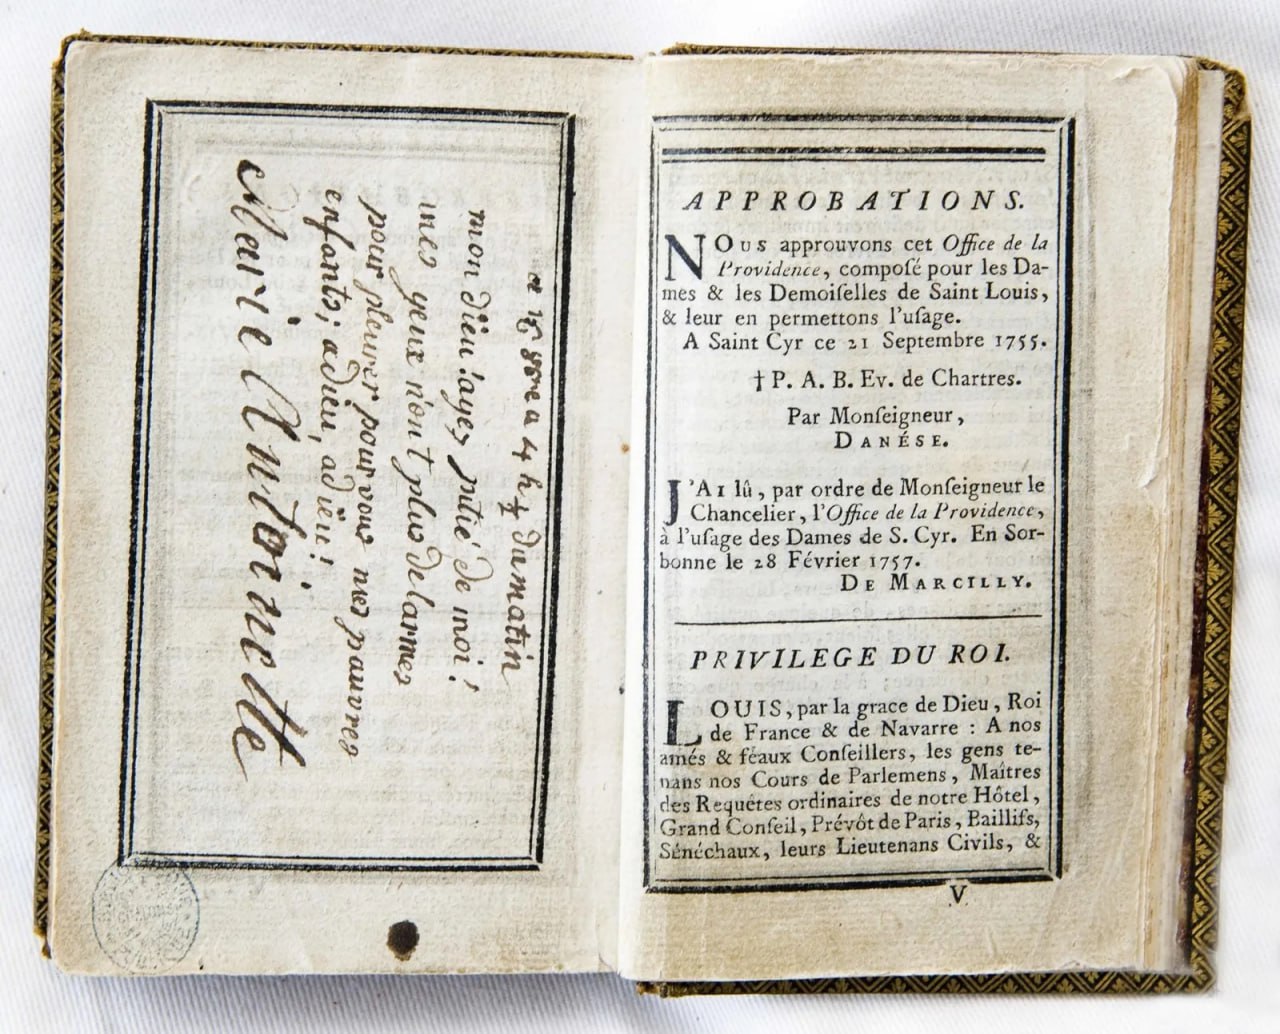 ce 16 8bre a 4 h ½ du matin
mon dieu ! ayez pitié de moi !
mes yeux n'ont plus de larmes
pour pleurer pour vous mes pauvres
enfants; adieu, adieu !
Marie Antoinette
APPROBATIONS.
NOUS approuvons cet Office de la
Providence, compoſé pour les Da-
mes & les Demoiſelles de Saint Louis,
& leur en permettons l'uſage.
A Saint Cyr ce 21 Septembre 1755.
† P. A. B. Ev. de Chartres.
Par Monſeigneur,
DANÉSE.
J'AI lû, par ordre de Monſeigneur le
Chancelier, l'Office de la Providence,
à l'uſage des Dames de S. Cyr. En Sor-
bonne le 28 Février 1757.
DE MARCILLY.
PRIVILEGE DU ROI.
LOUIS, par la grace de Dieu, Roi
de France & de Navarre : A nos
amés & féaux Conſeillers, les gens te-
nans nos Cours de Parlemens, Maîtres
des Requêtes ordinaires de notre Hôtel,
Grand Conſeil, Prévôt de Paris, Baillifs,
Sénéchaux, leurs Lieutenans Civils, &
V